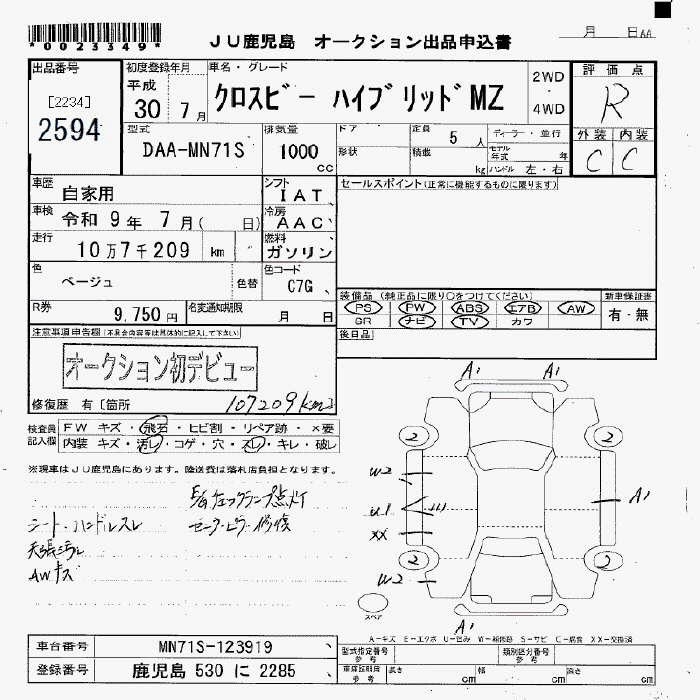 *0023349*
JU鹿児島 オークション出品申込書
月 日AA
出品番号
[2234]
2594
初度登録年月
平成
30 7月
車名・グレード
クロスビー ハイブリッドMZ
2WD
4WD
評価点
R
外装 内装
C C
型式
DAA-MN71S
排気量
1000
cc
ドア
形状
定員
5人
積載
kg
ディーラー・並行
モデル年式 年
ハンドル 左・右
車歴 自家用
車検 令和 9年 7月( 日)
走行 10万7千209 km
色 ベージュ
色替
シフト IAT
冷房 AAC
燃料 ガソリン
色コード C7G
R券 9,750円
名変通知期限 月 日
セールスポイント(正常に機能するものに限ります)
装備品 (純正品に限り○をつけてください)
PS PW ABS エアB AW
SR ナビ TV カワ
新車保証書
有・無
後日品
注意事項申告欄(不具合内容等は具体的に記入して下さい)
オークション初デビュー
修復歴 有〔箇所
107209km
検査員記入欄
FW キズ・飛石・ヒビ割・リペア跡・×要
内装 キズ・汚レ・コゲ・穴・スレ・キレ・破レ
※現車はJU鹿児島にあります。陸送費は落札店負担となります。
シート・ハンドルスレ
天張汚れ
AWキズ
A1
A1
A1
A1
2
2
2
2
W2
U1
XX
W2
スペア
A-キズ E-エクボ U-凹み W-補修跡 S-サビ C-腐食 XX-交換済
車台番号 MN71S-123919
登録番号 鹿児島 530 に 2285
型式指定番号
参考
類別区分番号
参考
車庫証明用
参考
長さ cm
幅 cm
高さ cm